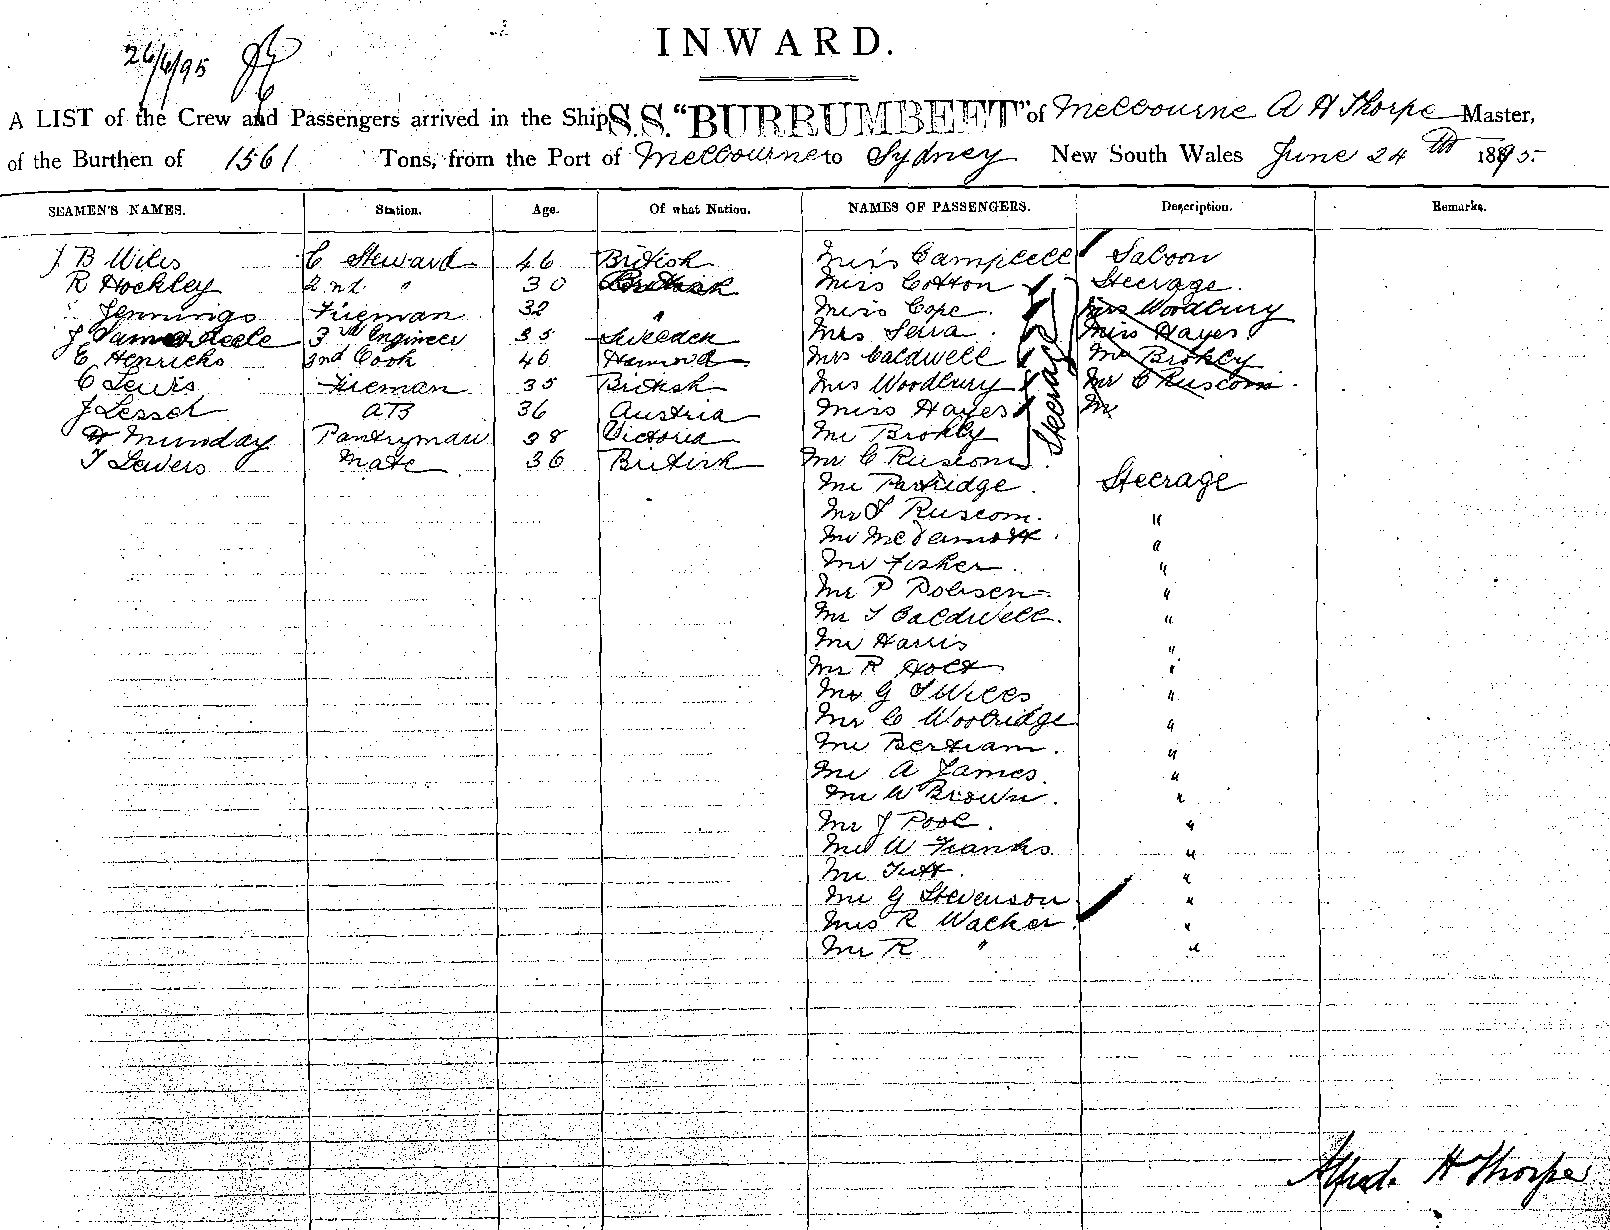 INWARD.
26/6/95
A LIST of the Crew and Passengers arrived in the Ship S.S. "BURRUMBEET" of Melbourne A H Thorpe Master,
of the Burthen of 1561 Tons, from the Port of Melbourne to Sydney New South Wales June 24th 1895.
SEAMEN'S NAMES. Station. Age. Of what Nation. NAMES OF PASSENGERS. Description. Remarks.
J B Wiles C Steward 46 British Miss Campbell Saloon
R Hockley 2nd " 30 British Miss Cotton Steerage
Jennings Fireman 32 " Miss Cope Mrs Woodbury
J Steele 3rd Engineer 35 Sweden Mrs Miss Hayes
C Henricks 2nd Cook 40 Mrs Caldwell Mr Brokly
C Lewis Fireman 35 British Mrs Woodbury Mr C Ruscom
J Lessel AB 36 Austria Miss Hayes Mr
H Munday Pantryman 28 Victoria Mr Brokly
T Lewers Mate 36 British Mr C Ruscom
Steerage
Mr Partridge Steerage
Mr T Ruscom. "
Mr McDermott "
Mr Fisher "
Mr P Dobsen "
Mr T Caldwell. "
Mr Harris "
Mr R Holt "
Mr G T Wills "
Mr C Woolridge "
Mr Bertram. "
Mr A James. "
Mr W Brown. "
Mr J Pool. "
Mr W Franks "
Mr Tutt. "
Mr G Stevenson "
Mrs R Walker "
Mr R " "
Alfred H Thorpe